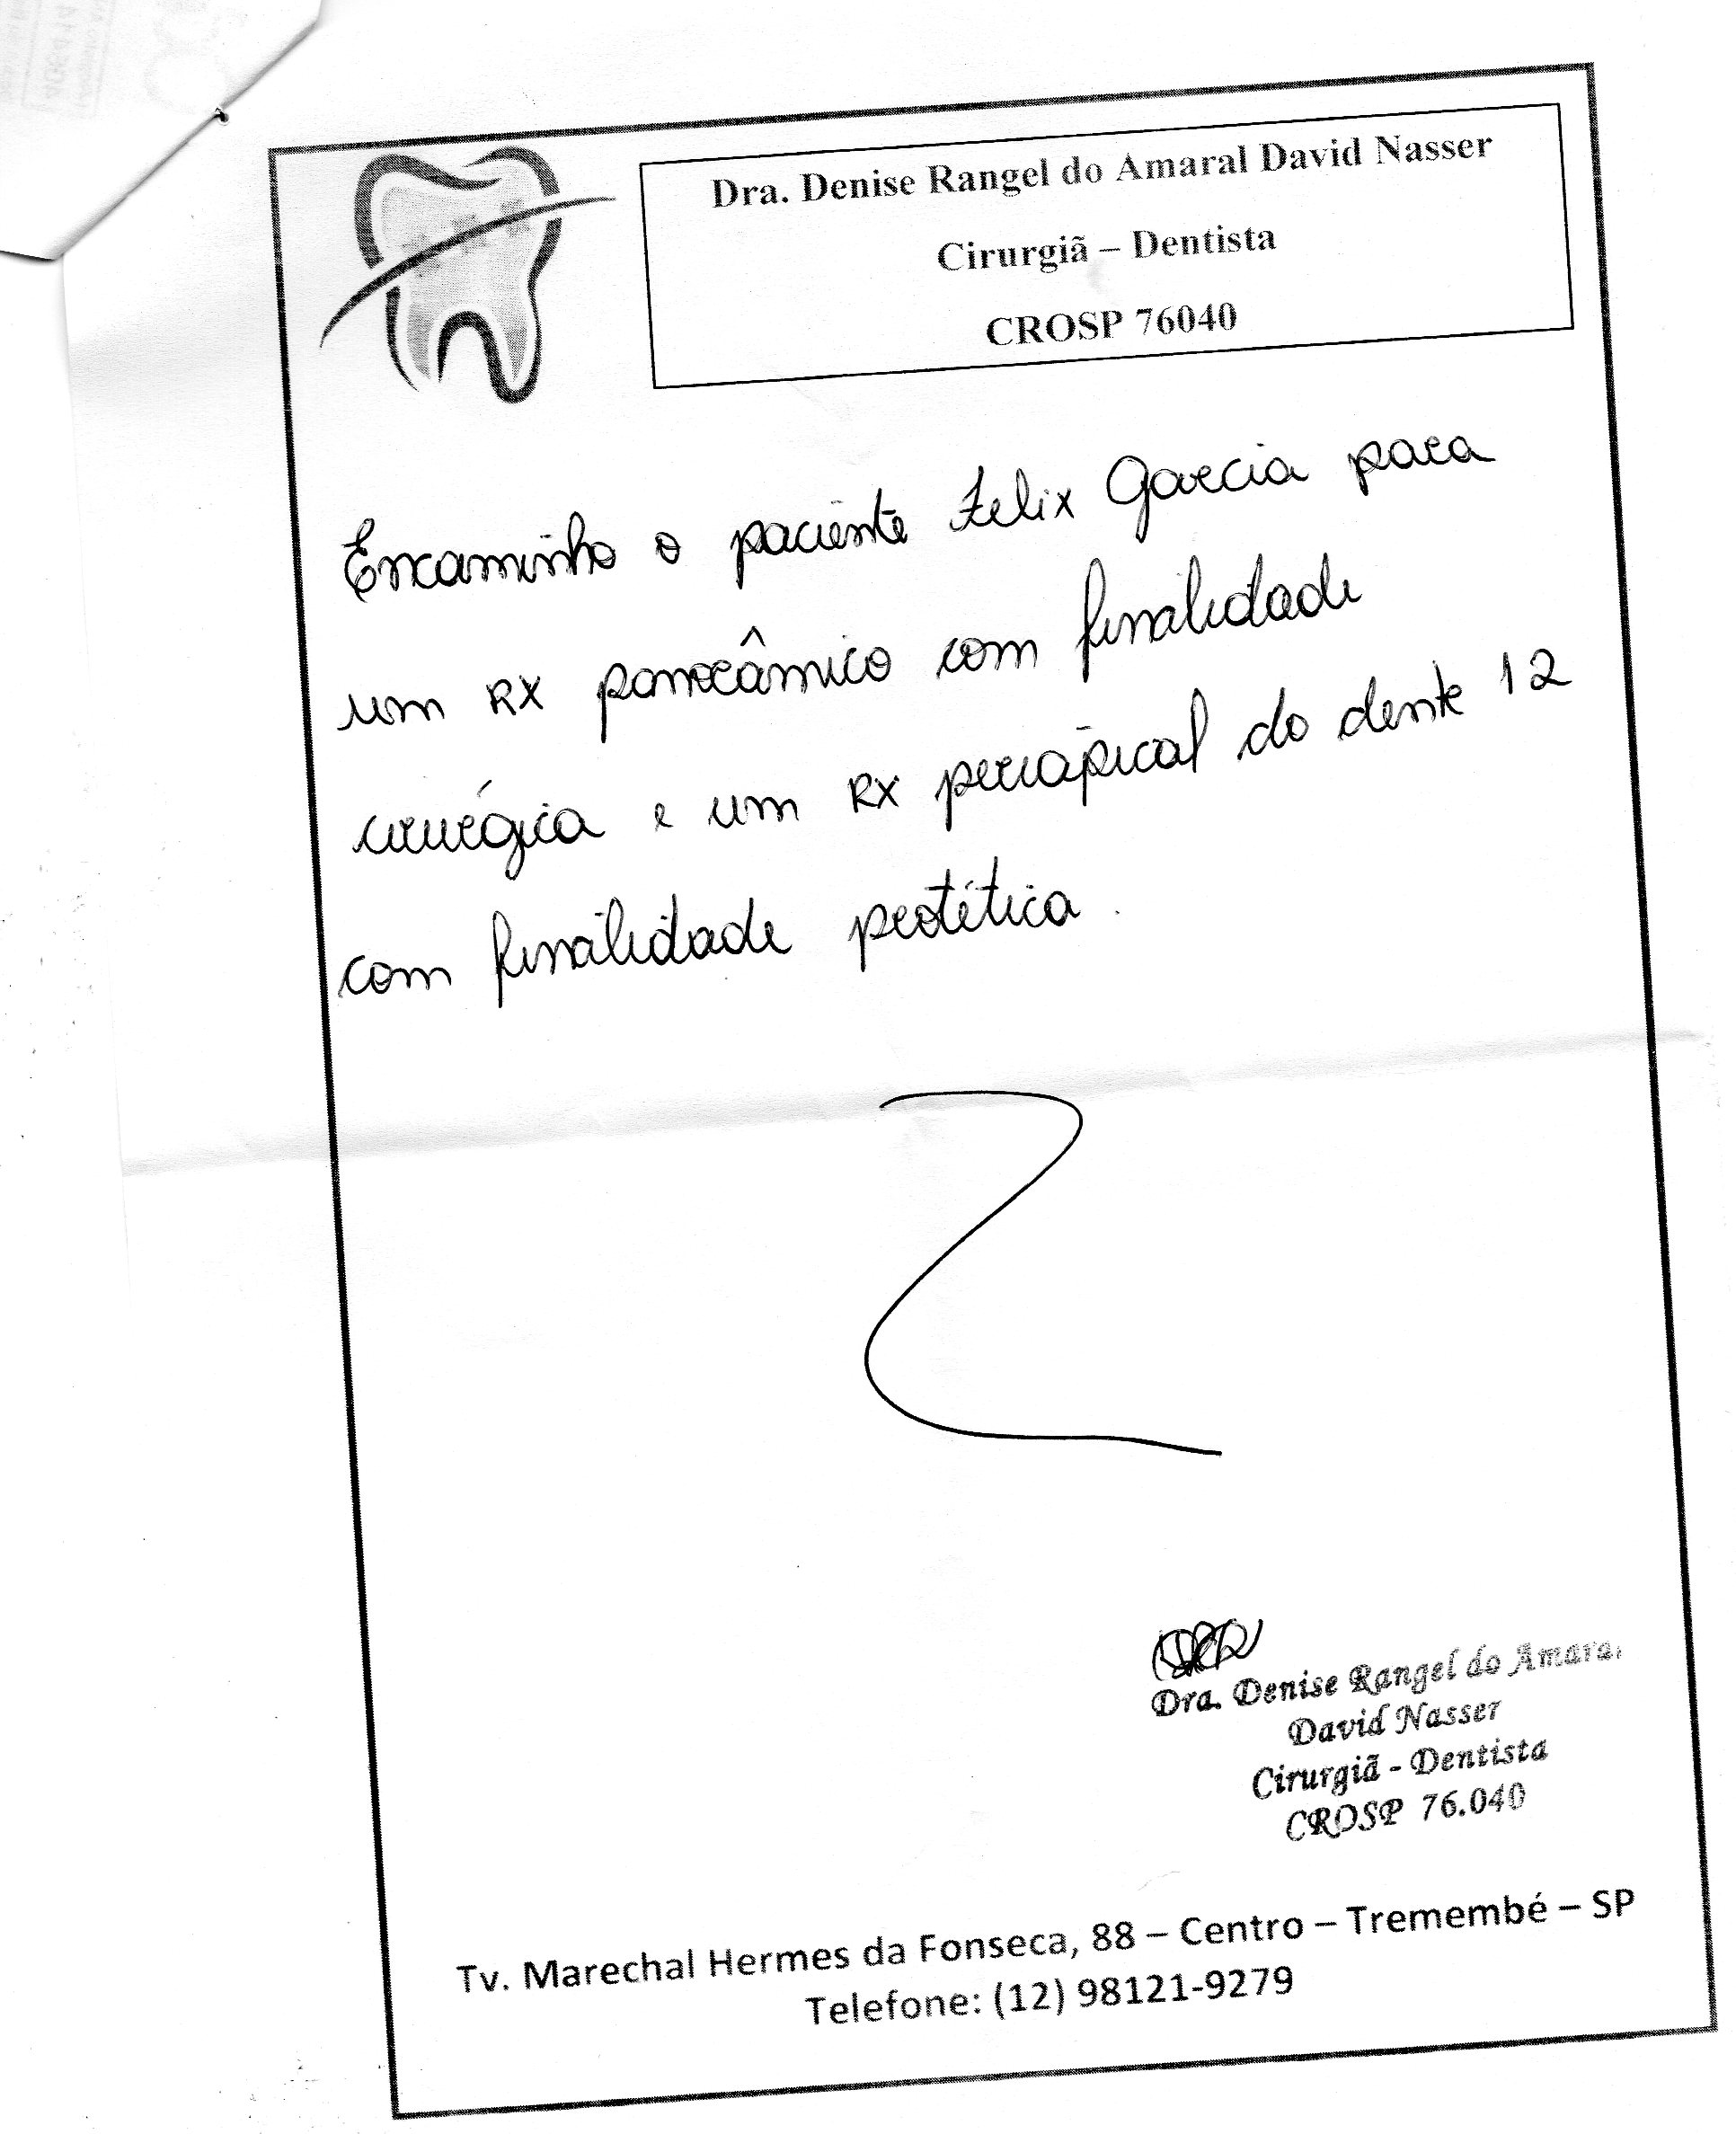 Dra. Denise Rangel do Amaral David Nasser
Cirurgiã – Dentista
CROSP 76040
Encaminho o paciente Felix Garcia para
um RX panorâmico com finalidade
cirúrgica e um RX periapical do dente 12
com finalidade protética.
Dra. Denise Rangel do Amaral
David Nasser
Cirurgiã - Dentista
CROSP 76.040
Tv. Marechal Hermes da Fonseca, 88 – Centro – Tremembé – SP
Telefone: (12) 98121-9279